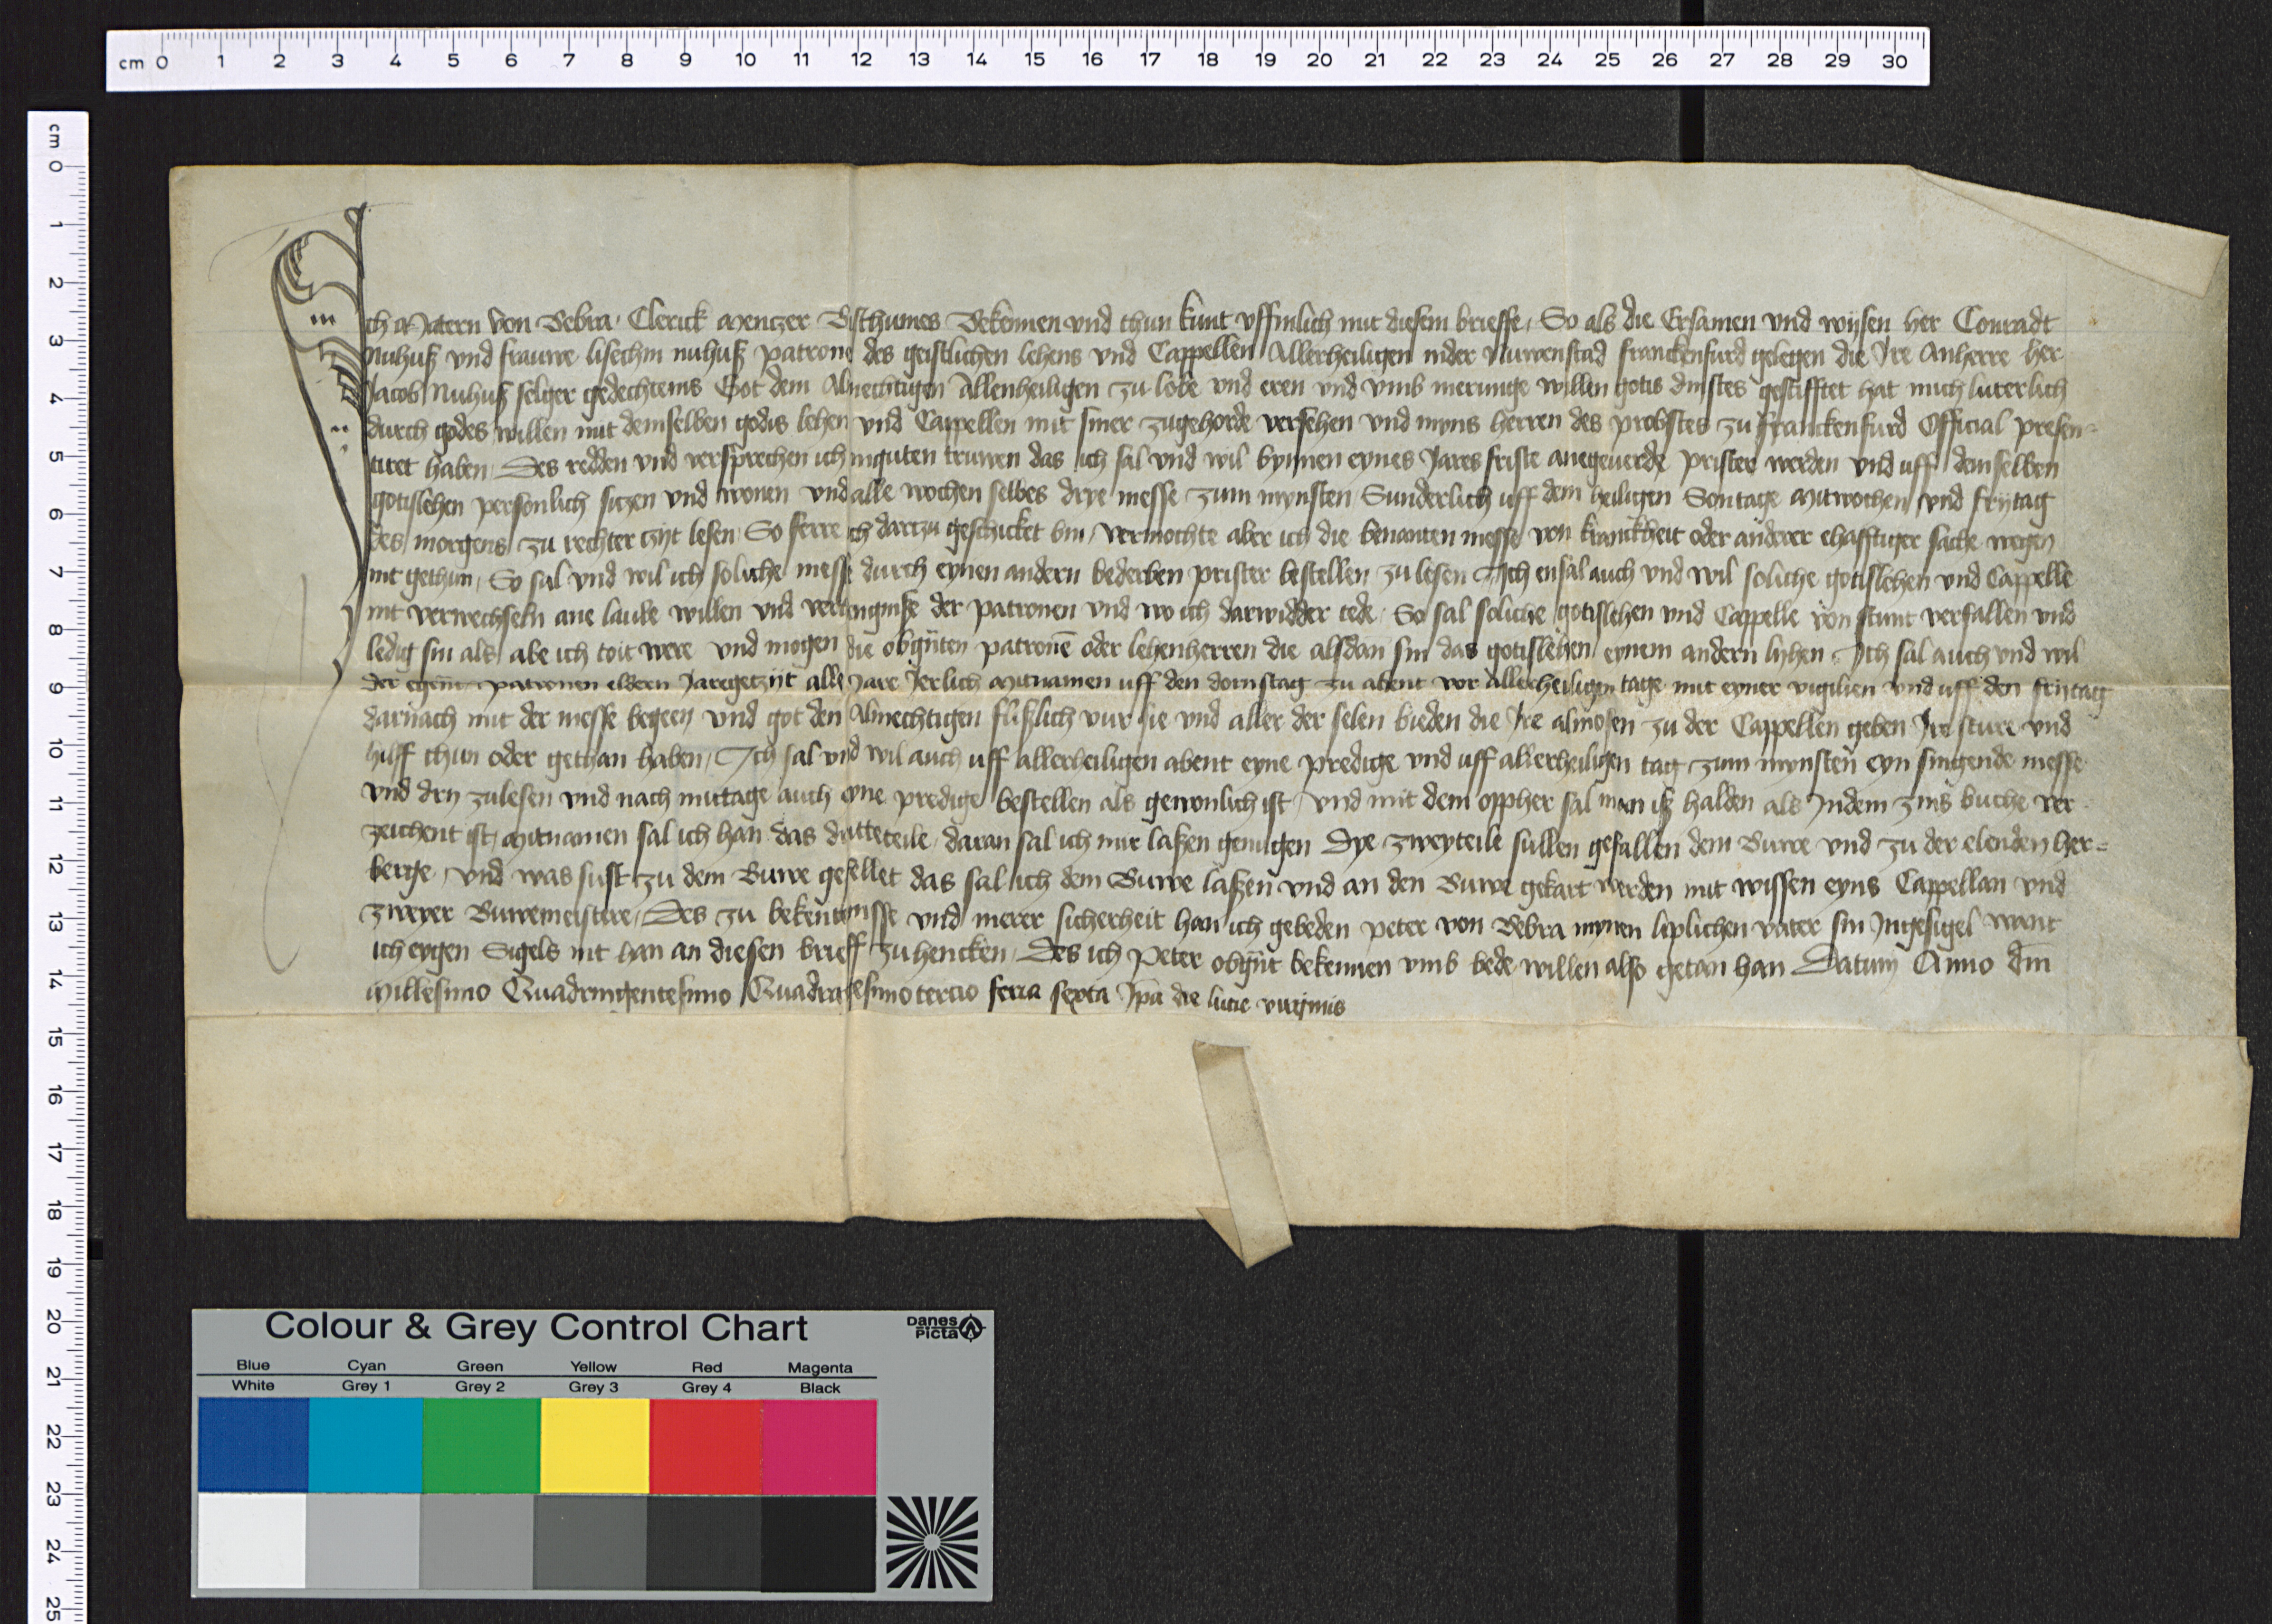 cm 0 1 2 3 4 5 6 7 8 9 10 11 12 13 14 15 16 17 18 19 20 21 22 23 24 25 26 27 28 29 30
cm 0 1 2 3 4 5 6 7 8 9 10 11 12 13 14 15 16 17 18 19 20 21 22 23 24 25
Ich Matern von Bebra Clerick Mentzer Bisthumes Bekennen vnd thun kunt vffinlich mit diesem brieffe, So als die Ersamen vnd wijsen her Conradt
Nuhuß vnd frauwe lisechin nuhuß patrone des geistlichen lehens vnd Cappellen Allerheiligen inder Nuwenstad franckenfurd gelegen die Ire Anherre her
Jacob Nuhuß seliger gedechtenis Got dem Almechtigen Allenheiligen zu lobe vnd eren vnd vmb merunge willen gotis dinstes gestifftet hat mich luterlich
durch godes willen mit demselben godis lehen vnd Cappellen mit siner zugehorde versehen vnd myns herren des probstes zu franckenfurd Official presen-
tiret haben, Des redden vnd versprechen ich inguten truwen das ich sal vnd wil bynnen eynes Jares friste anegeuerde prister werden vnd uff demselben
gotislehen personlich sitzen vnd wonen vnd alle wochen selbes drye messe zum mynsten Sunderlich uff dem heiligen Sontage Mitwochen vnd frijtag
des morgens zu rechter czijt lesen, So ferre ich dartzu geschicket bin, vermochte aber ich die benanten messe von kranckheit oder anderer ehafftiger sache wegen
nit gethun, So sal vnd wil ich soliche messe durch eynen andern bederben prister bestellen zu lesen Ich ensal auch vnd wil soliche gotislehen vnd Cappelle
nit verwechseln ane laube willen vnd verhengniße der patronen vnd wo ich darwidder tede, So sal soliche gotislehen vnd Cappelle von stunt verfallen vnd
ledig sin als abe ich toit were vnd mogen die obgnten patrone oder lehenherren die alsdan sin das gotislehen eynem andern lyhen, Ich sal auch vnd wil
der egent patronen eldern Jaregetzijt alle Jare Jerlich Mitnamen uff den dornstag zu abent vor Allerheiligen tage mit eyner vigilien vnd uff den frijtag
darnach mit der messe begeen vnd got den Almechtigen flißlich vur sie vnd aller der selen bieden die Ire almosen zu der Cappellen geben Ire sture vnd
hilff thun oder gethan haben, Ich sal vnd wil auch uff allerheiligen abent eyne predige vnd uff allerheiligen tag zum mynsten eyn singende messe
vnd dry zulesen vnd nach mittage auch eyne predige bestellen als gewonlich ist, vnd mit dem oppher sal man iß halden als Indem zins buche ver-
zeichent ist, Mitnamen sal ich han das dritteteile, daran sal ich mir laßen genugen Dye zweyteile sullen gefallen dem Buwe vnd zu der elenden her-
berge, vnd was sust zu dem Buwe gefellet das sal ich dem Buwe laßen vnd an den Buwe gekart werden mit wissen eyns Cappellan vnd
zweyer Buwemeistere, Des zu bekentenisse vnd merer sicherheit han ich gebeden peter von Bebra mynen liplichen vater sin Ingesigel want
ich eygen Sigels nit han an diesen brieff zu hencken, Des ich Peter obgnt bekennen vmb bede willen also getan han Datum Anno dni
Millesimo Quadringentesimo Quadragesimo tercio feria sexta Ipa die lucie virginis
Colour & Grey Control Chart
Danes Picta
Blue Cyan Green Yellow Red Magenta
White Grey 1 Grey 2 Grey 3 Grey 4 Black